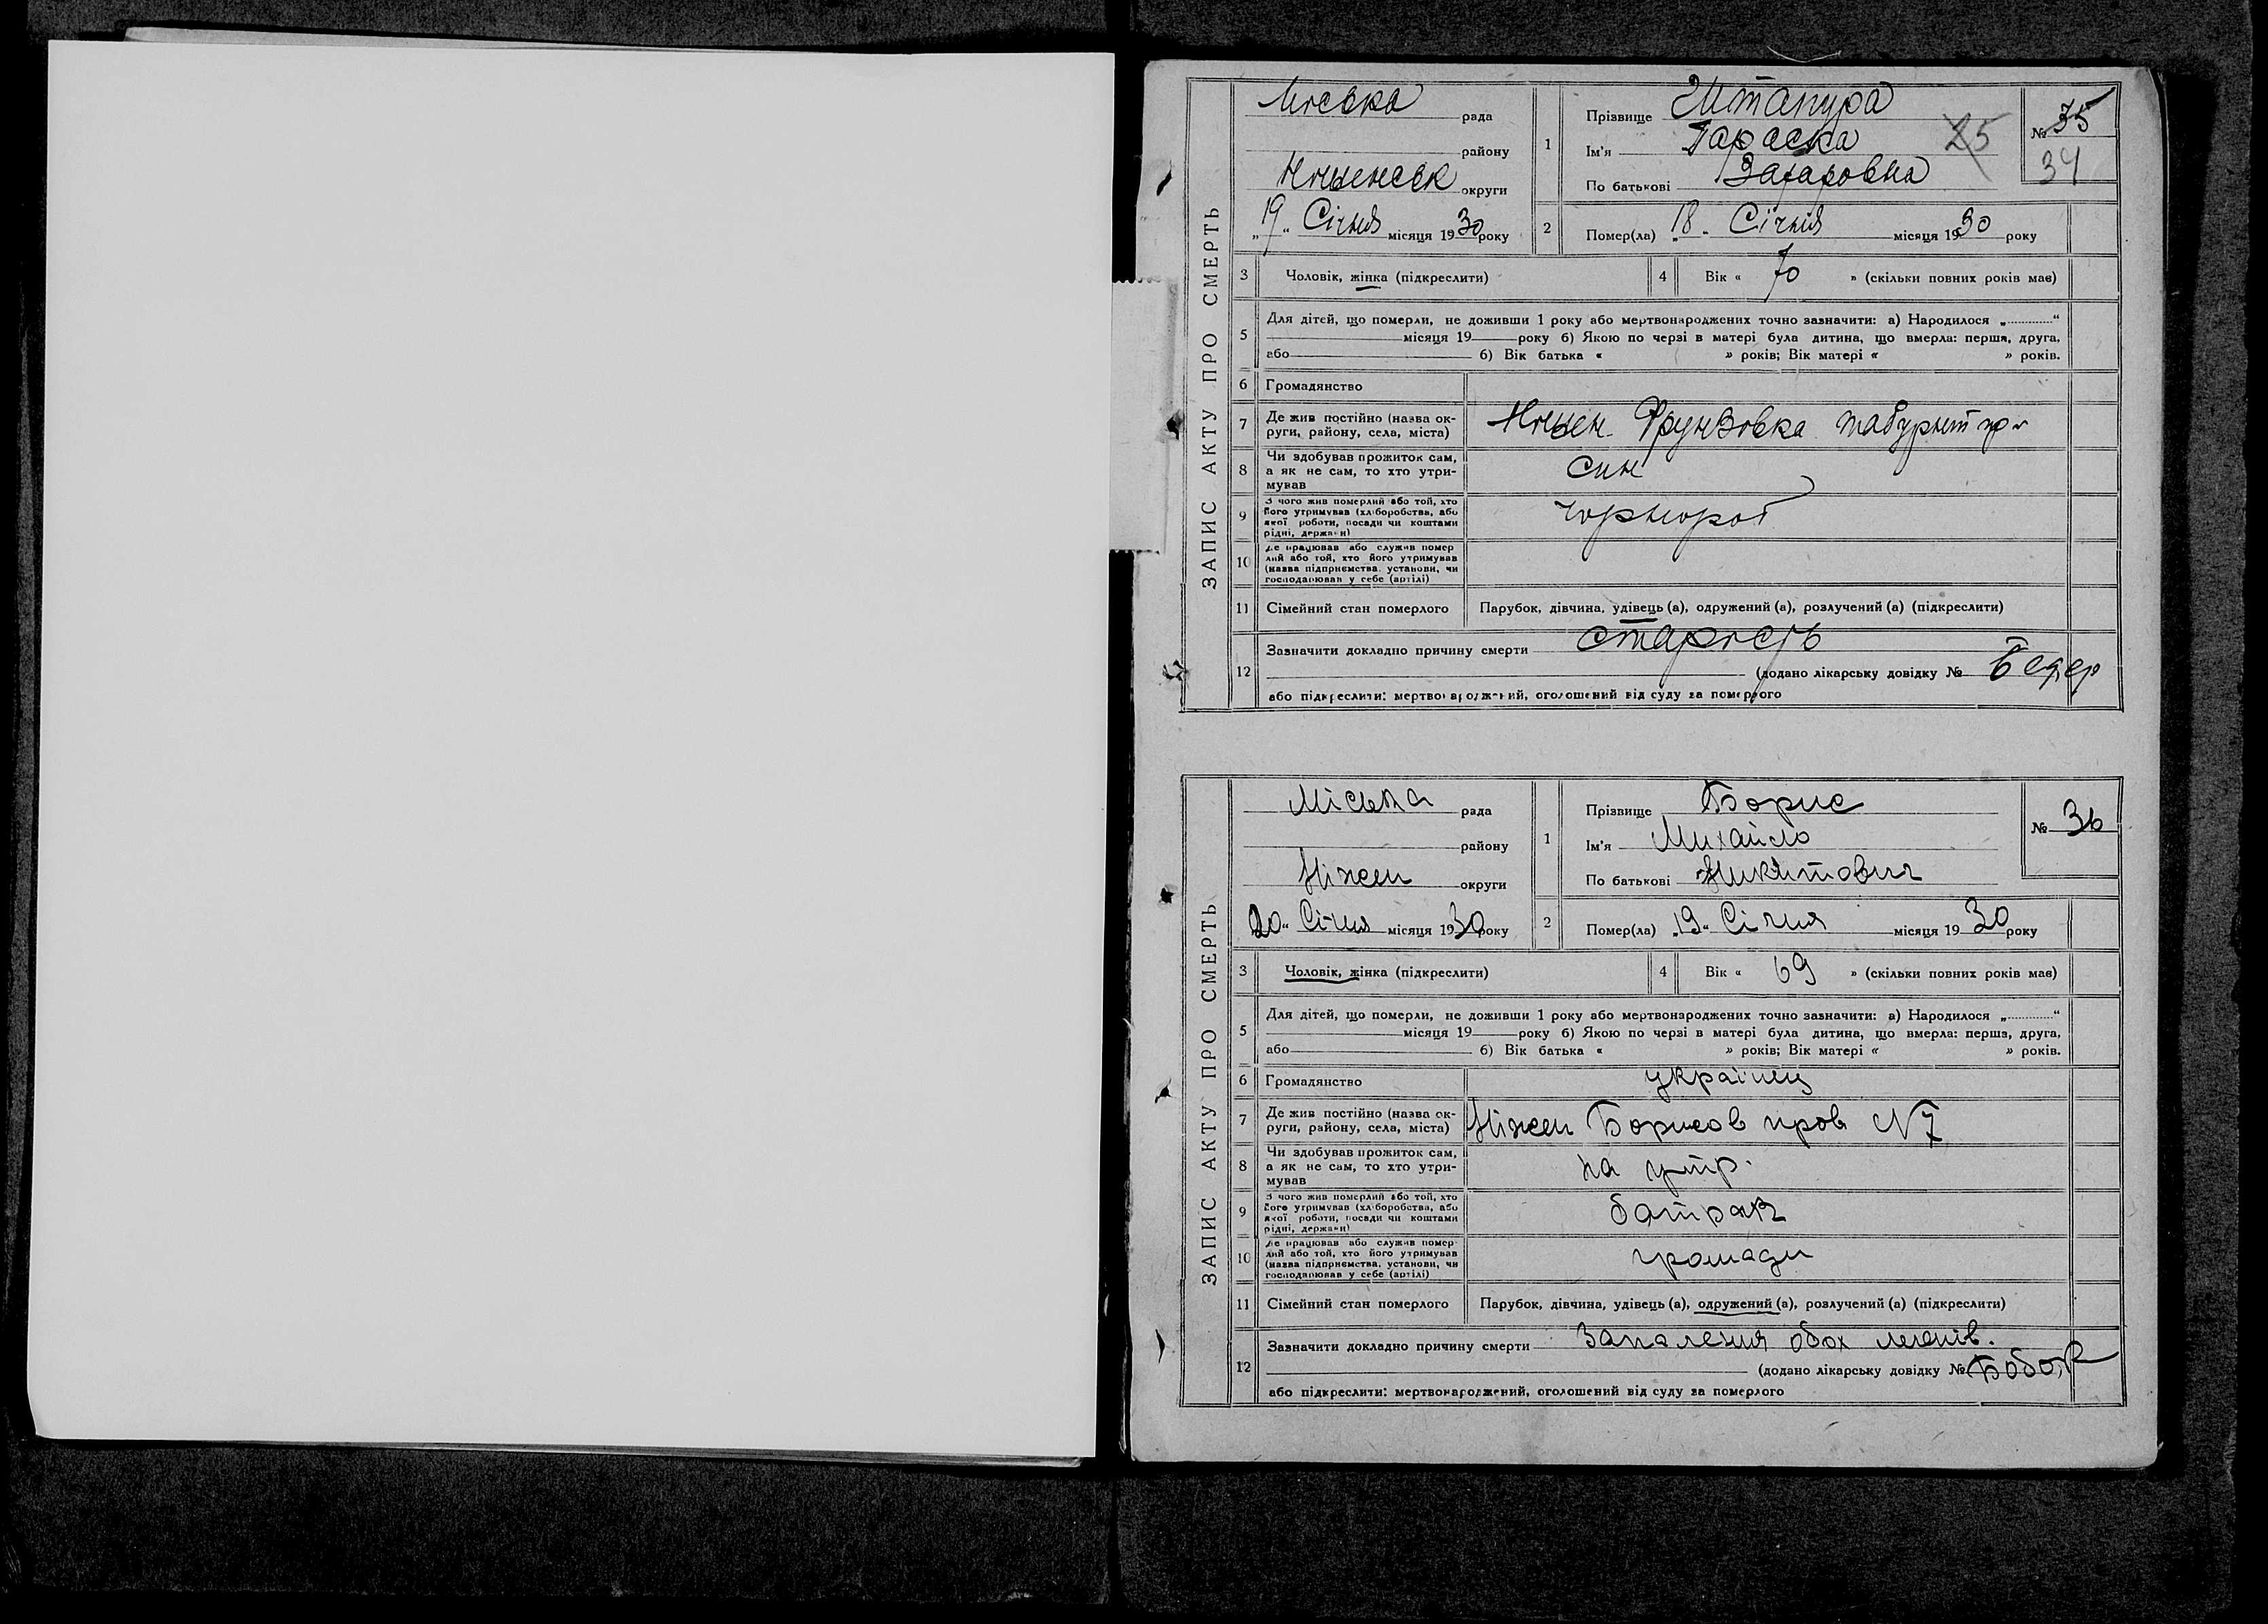 ЗАПИС АКТУ ПРО СМЕРТЬ
Міська рада
району
округи
"19" Січня місяця 1930 року
1
Прізвище Штапура
Ім'я Параска
По батькові Захаровна
25
№ 35
34
2
Помер(ла) "18" Січня місяця 1930 року
3 Чоловік, жінка (підкреслити)
4 Вік « 70 » (скільки повних років мав)
5
Для дітей, що померли, не доживши 1 року або мертвонароджених точно зазначити: а) Народилося „............“
місяця 19 року б) Якою по черзі в матері була дитина, що вмерла: перша, друга,
або б) Вік батька « » років; Вік матері « » років.
6 Громадянство
7 Де жив постійно (назва ок-
руги, району, села, міста)
Фрунзовка
8 Чи здобував прожиток сам,
а як не сам, то хто утри-
мував
син
9 З чого жив померлий або той, хто
його утримував (хліборобства, або
якої роботи, посади чи коштами
рідні, держави)
чорнороб
10 Де працював або служив помер
лий або той, хто його утримував
(назва підприємства, установи, чи
господарював у себе (артілі)
11 Сімейний стан померлого
Парубок, дівчина, удівець (а), одружений (а), розлучений (а) (підкреслити)
12
Зазначити докладно причину смерти старость
(додано лікарську довідку №
або підкреслити: мертвонароджений, оголошений від суду за померлого
ЗАПИС АКТУ ПРО СМЕРТЬ
Міська рада
району
Ніжен округи
20" Січня місяця 1930 року
1
Прізвище Борис
Ім'я Михайло
По батькові Никитович
№ 36
2
Помер(ла) "19" Січня місяця 1930 року
3 Чоловік, жінка (підкреслити)
4 Вік « 69 » (скільки повних років мав)
5
Для дітей, що померли, не доживши 1 року або мертвонароджених точно зазначити: а) Народилося „............“
місяця 19 року б) Якою по черзі в матері була дитина, що вмерла: перша, друга,
або б) Вік батька « » років; Вік матері « » років.
6 Громадянство українец
7 Де жив постійно (назва ок-
руги, району, села, міста)
Ніжен Борисов пров N7
8 Чи здобував прожиток сам,
а як не сам, то хто утри-
мував
на утр.
9 З чого жив померлий або той, хто
його утримував (хліборобства, або
якої роботи, посади чи коштами
рідні, держави)
батрак
10 Де працював або служив помер
лий або той, хто його утримував
(назва підприємства, установи, чи
господарював у себе (артілі)
громади
11 Сімейний стан померлого
Парубок, дівчина, удівець (а), одружений (а), розлучений (а) (підкреслити)
12
Зазначити докладно причину смерти Запалення обох легенів.
(додано лікарську довідку №
або підкреслити: мертвонароджений, оголошений від суду за померлого